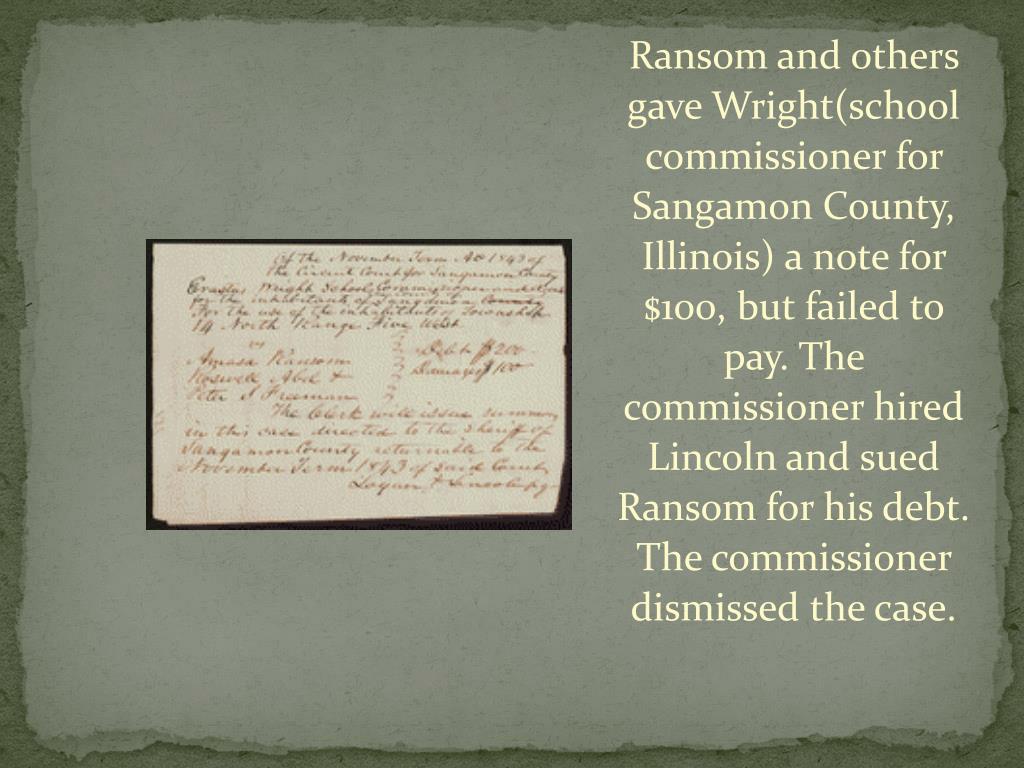 of the November Term AD 1843 of
the Circuit Court for Sangamon County
Erastus Wright School Commissioner
for the inhabitants of Sangamon County
For the use of the inhabitants of Township
14 North Range Five West
vs
Amasa Ransom Debt $200
Roswell Abel & Damages $100
Peter S Freeman
The Clerk will issue summons
in this case directed to the sheriff of
Sangamon County returnable to the
November Term 1843 of said Court
Logan & Lincoln pq
Ransom and others
gave Wright(school
commissioner for
Sangamon County,
Illinois) a note for
$100, but failed to
pay. The
commissioner hired
Lincoln and sued
Ransom for his debt.
The commissioner
dismissed the case.